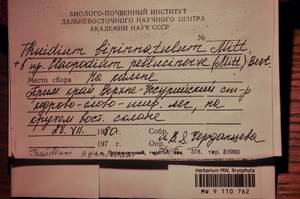 БИОЛОГО-ПОЧВЕННЫЙ ИНСТИТУТ
ДАЛЬНЕВОСТОЧНОГО НАУЧНОГО ЦЕНТРА
АКАДЕМИИ НАУК СССР
№
Thuidium bipinnatulum Mitt.
+ Haplodium pellucinerve (Mitt)
Место сбора На клене
Прим. край Верхне-Уссурийский ст-р
кедрово-елово-шир. лес, на
крутом вост. склоне
28. VII. 1980. Собр.
Thuidium
зак. 578. тир. 20000
Herbarium MW, Bryophyta
MW 9 110 762